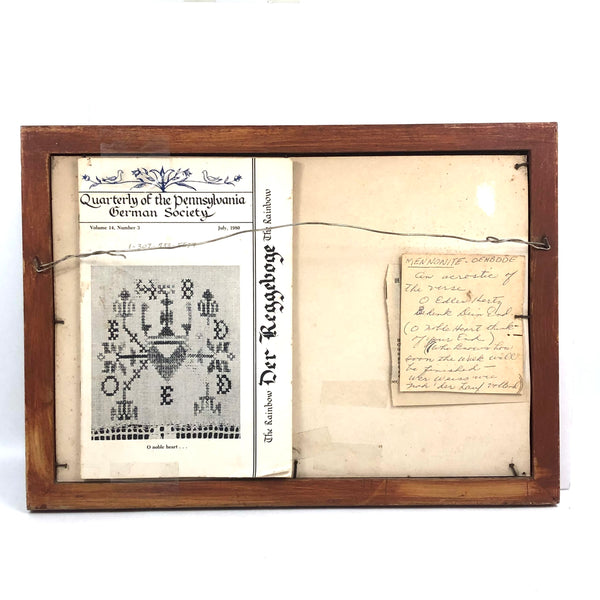 Quarterly of the Pennsylvania
German Society
Volume 14, Number 3 July, 1980
The Rainbow Der Reggeboge The Rainbow
8
E D
O D
E
O noble heart . . .
MENNONITE - OEHBDDE
an acrostic of
the verse
O Edles Hertz
Bedenk Dein End
(O noble Heart think
of your End)
(Who knows how
soon the Work will
be finished —
Wer Weiss wie